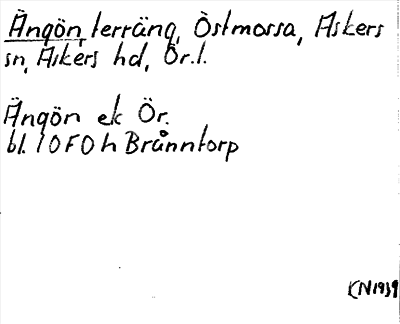 Ängön, terräng, Östmossa, Askers
sn, Askers hd, Ör. l.
Ängön ek Ör.
bl. 10 F 0 h Brånntorp
KN 1939